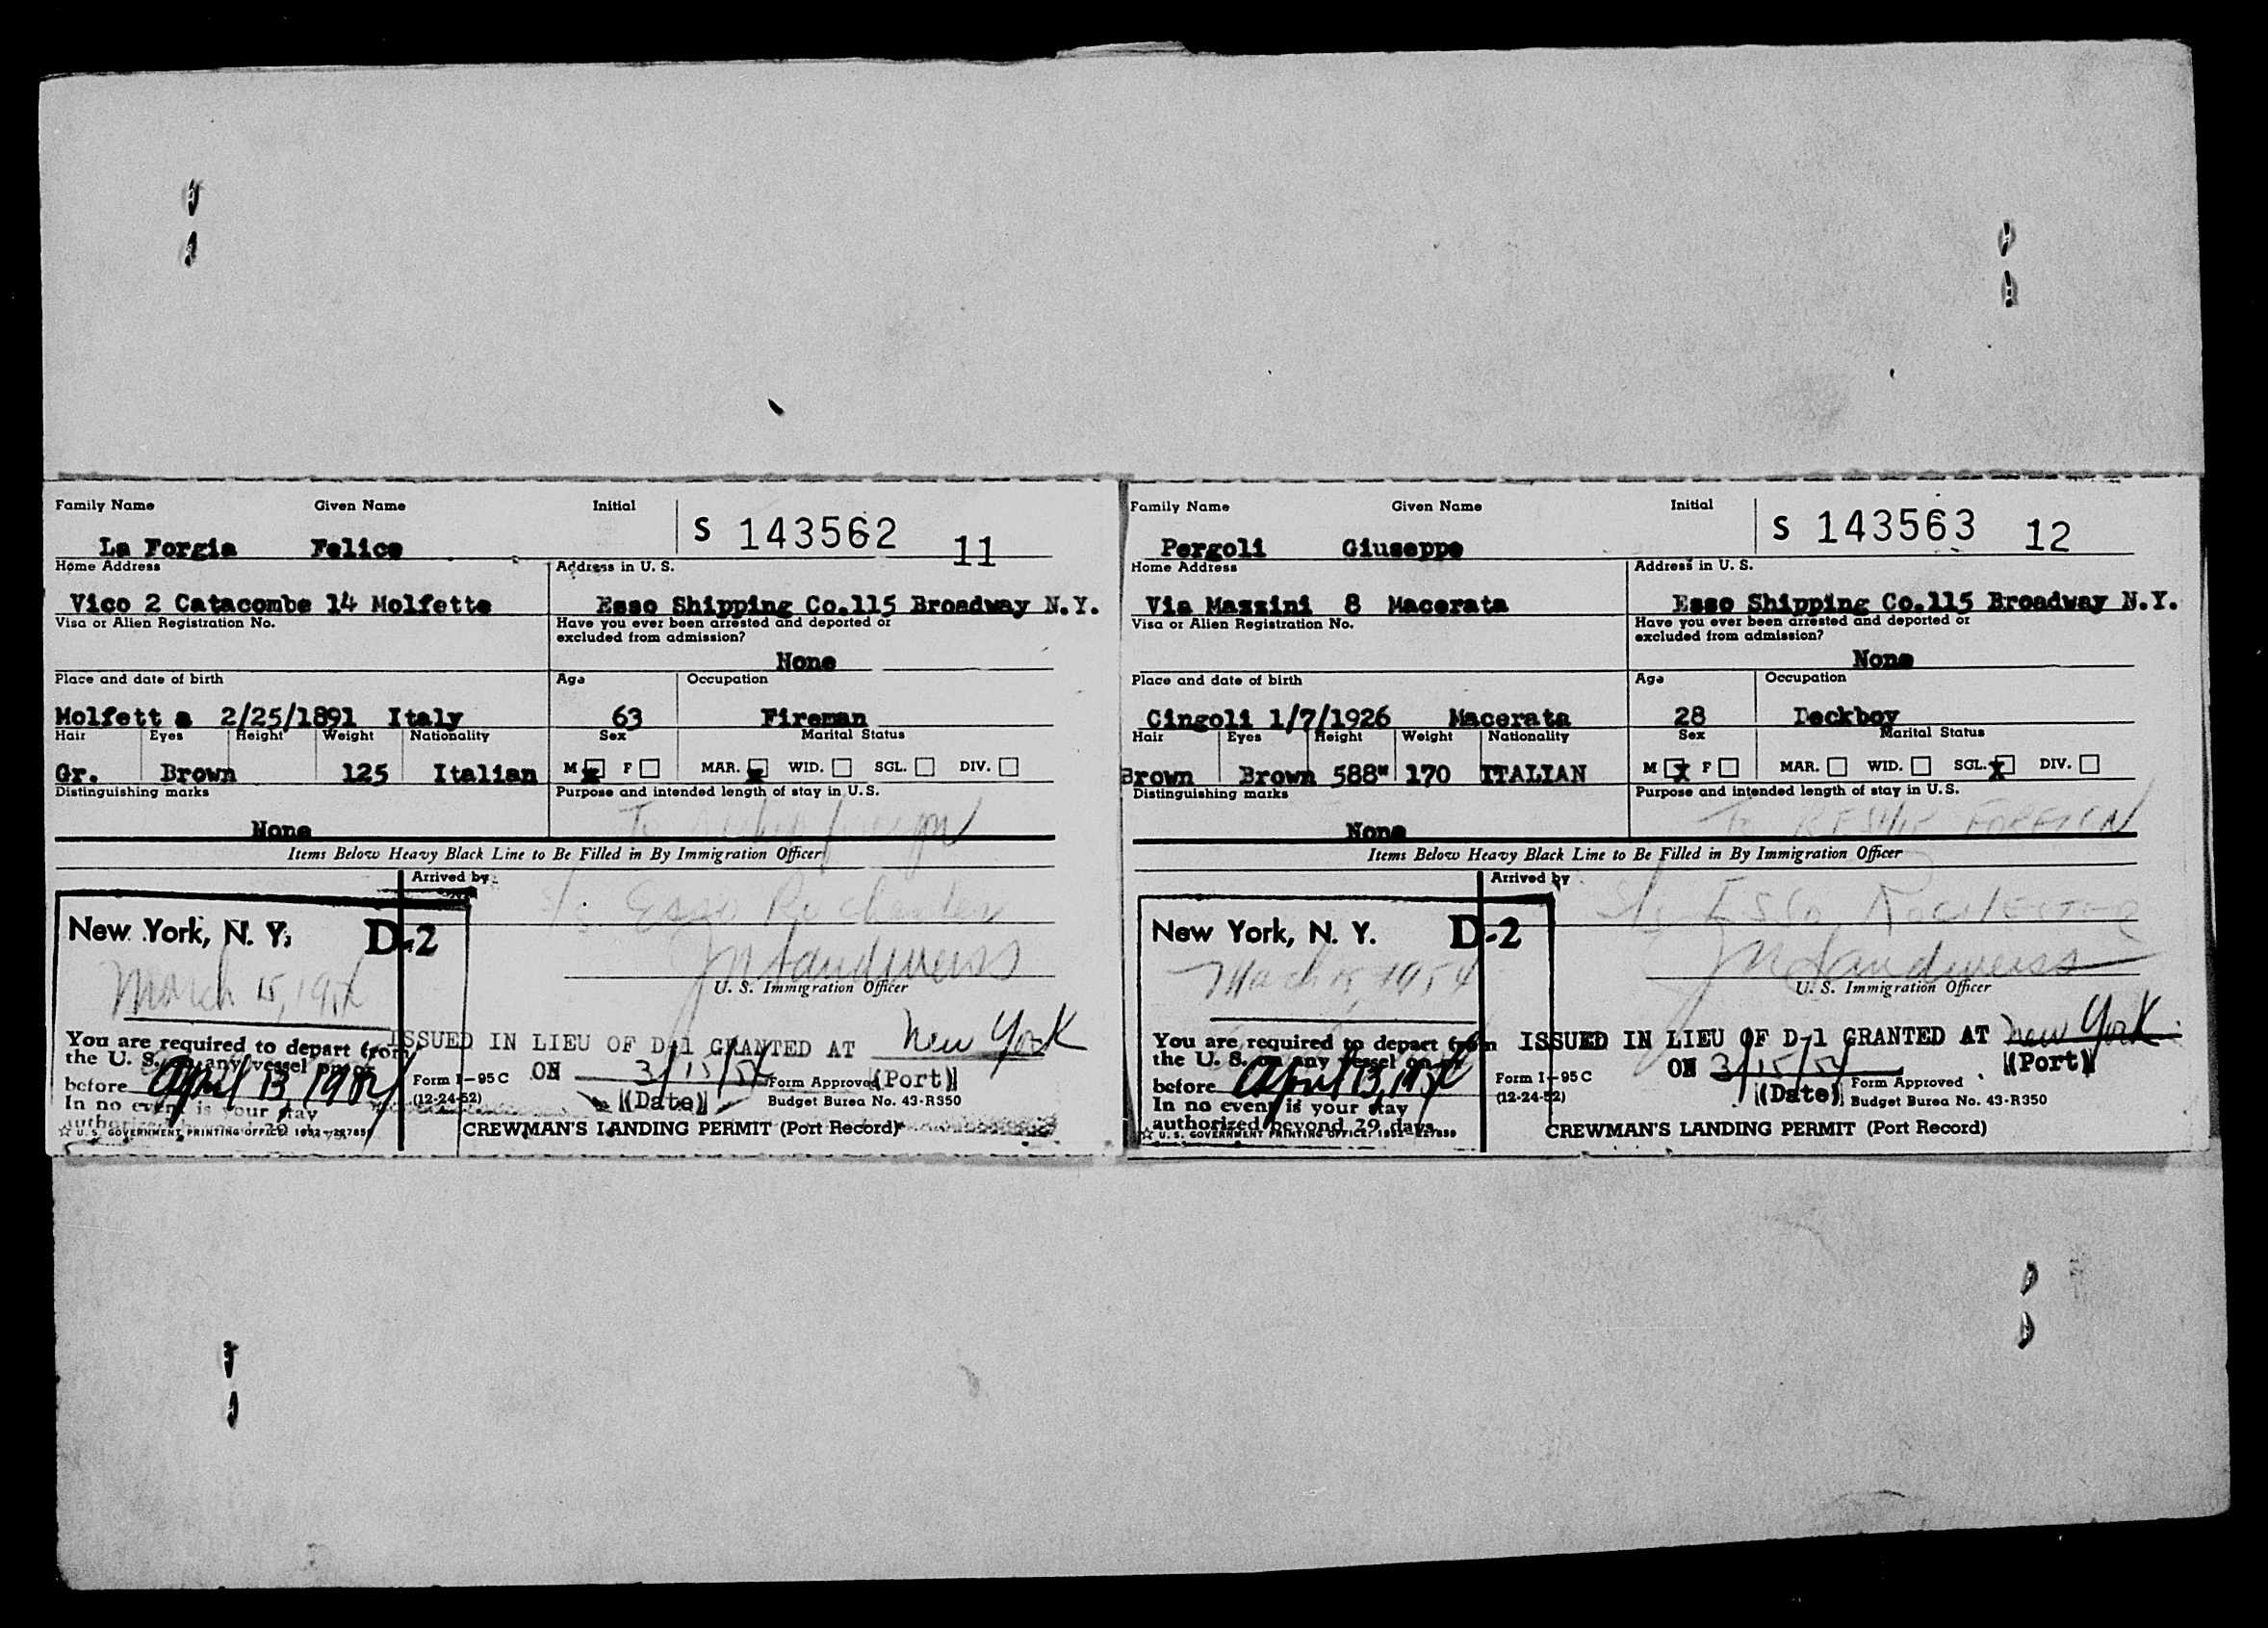 Family Name Given Name Initial
S 143562 11
La Forgia Felice
Home Address Address in U. S.
Vico 2 Catacombe 14 Molfette Esso Shipping Co.115 Broadway N.Y.
Visa or Alien Registration No. Have you ever been arrested and deported or
excluded from admission?
None
Place and date of birth Age Occupation
Molfett a 2/25/1891 Italy 63 Fireman
Hair Eyes Height Weight Nationality Sex Marital Status
Gr. Brown 125 Italian M x F MAR. x WID. SGL. DIV.
Distinguishing marks Purpose and intended length of stay in U.S.
None To
Items Below Heavy Black Line to Be Filled in By Immigration Officer
Arrived by
S/S Esso Rochester
New York, N. Y. D-2
March 15, 1954
U. S. Immigration Officer
ISSUED IN LIEU OF D-1 GRANTED AT New York
You are required to depart from
the U. S. on any vessel on or
before April 13, 1954
ON 3/15/54 (Port)
(Date)
In no event is your stay
Form I-95C
(12-24-52)
Form Approved
Budget Burea No. 43-R350
☆ U. S. GOVERNMENT PRINTING OFFICE
CREWMAN'S LANDING PERMIT (Port Record)
Family Name Given Name Initial
S 143563 12
Pergoli Giuseppe
Home Address Address in U. S.
Via Mazzini 8 Macerata Esso Shipping Co.115 Broadway N.Y.
Visa or Alien Registration No. Have you ever been arrested and deported or
excluded from admission?
None
Place and date of birth Age Occupation
Cingoli 1/7/1926 Macerata 28 Deckboy
Hair Eyes Height Weight Nationality Sex Marital Status
Brown Brown 588" 170 ITALIAN M x F MAR. WID. SGL. x DIV.
Distinguishing marks Purpose and intended length of stay in U.S.
None To RESHIP FOREIGN
Items Below Heavy Black Line to Be Filled in By Immigration Officer
Arrived by
S/S ESSO ROCHESTER
New York, N. Y. D-2
March 15, 1954
U. S. Immigration Officer
ISSUED IN LIEU OF D-1 GRANTED AT New York
You are required to depart from
the U. S. on any vessel on or
before April 13, 1954
ON 3/15/54 (Port)
(Date)
In no event is your stay
authorized beyond 29 days
Form I-95C
(12-24-52)
Form Approved
Budget Burea No. 43-R350
☆ U. S. GOVERNMENT PRINTING OFFICE
CREWMAN'S LANDING PERMIT (Port Record)